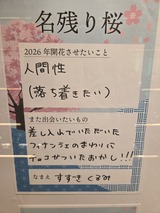 名残り桜
2026年開花させたいこと
人間性
(落ち着きたい)
また出会いたいもの
差し入れでいただいた
フィナンシェのまわりに
チョコがついたおかし!!!
なまえ すずき くるみ